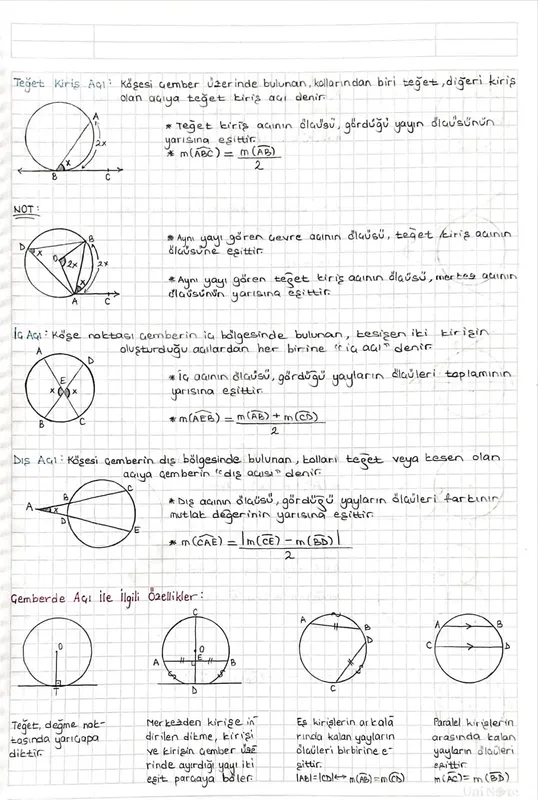 Teğet Kiriş Açı: Köşesi çember üzerinde bulunan, kollarından biri teğet, diğeri kiriş
olan açıya teğet kiriş açı denir.
A
x
2x
B
C
* Teğet kiriş açının ölçüsü, gördüğü yayın ölçüsünün
yarısına eşittir.
* m(ABC) = m(AB)
2
NOT:
D
x
B
O
2x
2x
x
A
C
* Aynı yayı gören çevre açının ölçüsü, teğet kiriş açının
ölçüsüne eşittir.
* Aynı yayı gören teğet kiriş açının ölçüsü, merkez açının
ölçüsünün yarısına eşittir.
İç Açı: Köşe noktası çemberin iç bölgesinde bulunan, kesişen iki kirişin
oluşturduğu açılardan her birine "iç açı" denir.
A
D
E
x
x
B
C
* İç açının ölçüsü, gördüğü yayların ölçüleri toplamının
yarısına eşittir.
* m(AEB) = m(AB) + m(CD)
2
Dış Açı: Köşesi çemberin dış bölgesinde bulunan, kolları teğet veya kesen olan
açıya çemberin "dış açısı" denir.
C
B
A
x
D
E
* Dış açının ölçüsü, gördüğü yayların ölçüleri farkının
mutlak değerinin yarısına eşittir.
* m(CAE) = |m(CE) - m(BD)|
2
Çemberde Açı İle İlgili Özellikler:
O
T
Teğet, değme nok-
tasında yarıçapa
diktir.
C
O
E
A
B
D
Merkezden kirişe in
dirilen dikme, kirişi
ve kirişin çember üze
rinde ayırdığı yayı iki
eşit parçaya böler.
A
B
D
C
Eş kirişlerin arkala
rında kalan yayların
ölçüleri birbirine e-
şittir.
|AB|=|CD|↔ m(AB)=m(CD)
A
B
C
D
Paralel kirişlerin
arasında kalan
yayların ölçüleri
eşittir.
m(AC)= m(BD)